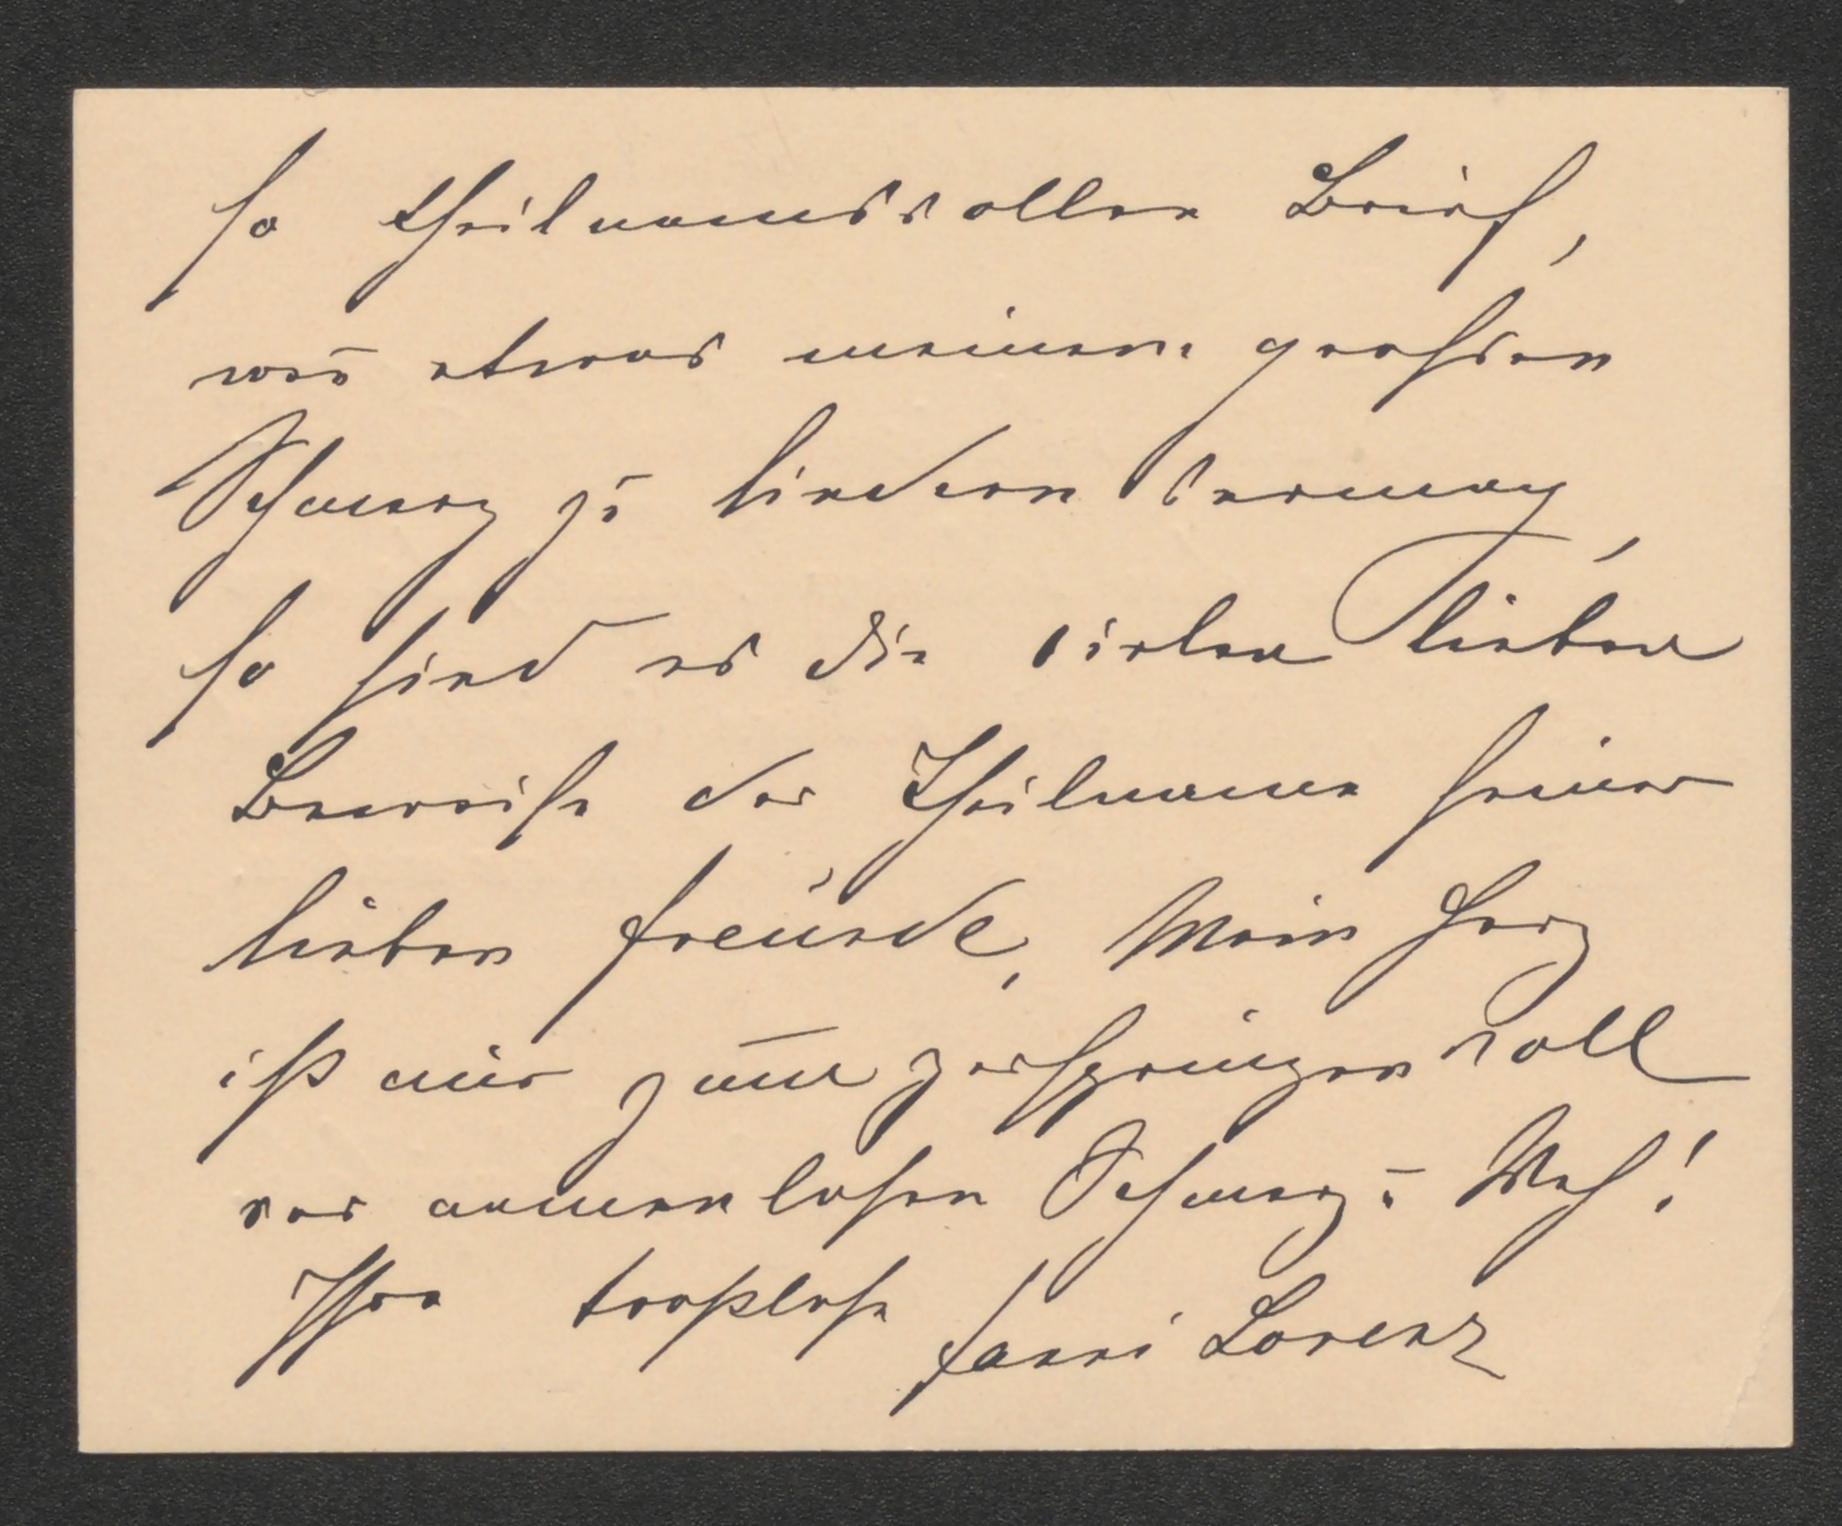 so theilnamsvollen Brief,
was etwas meinem großen
Schmerz zu lindern vermag,
so sind es die vielen lieben
Beweise der Theilname seiner
lieben Freunde, Mein Herz
ist mir zum zerspringen voll
vor namenlosen Schmerz u Weh!
Ihre trostlose Fanni Lorenz